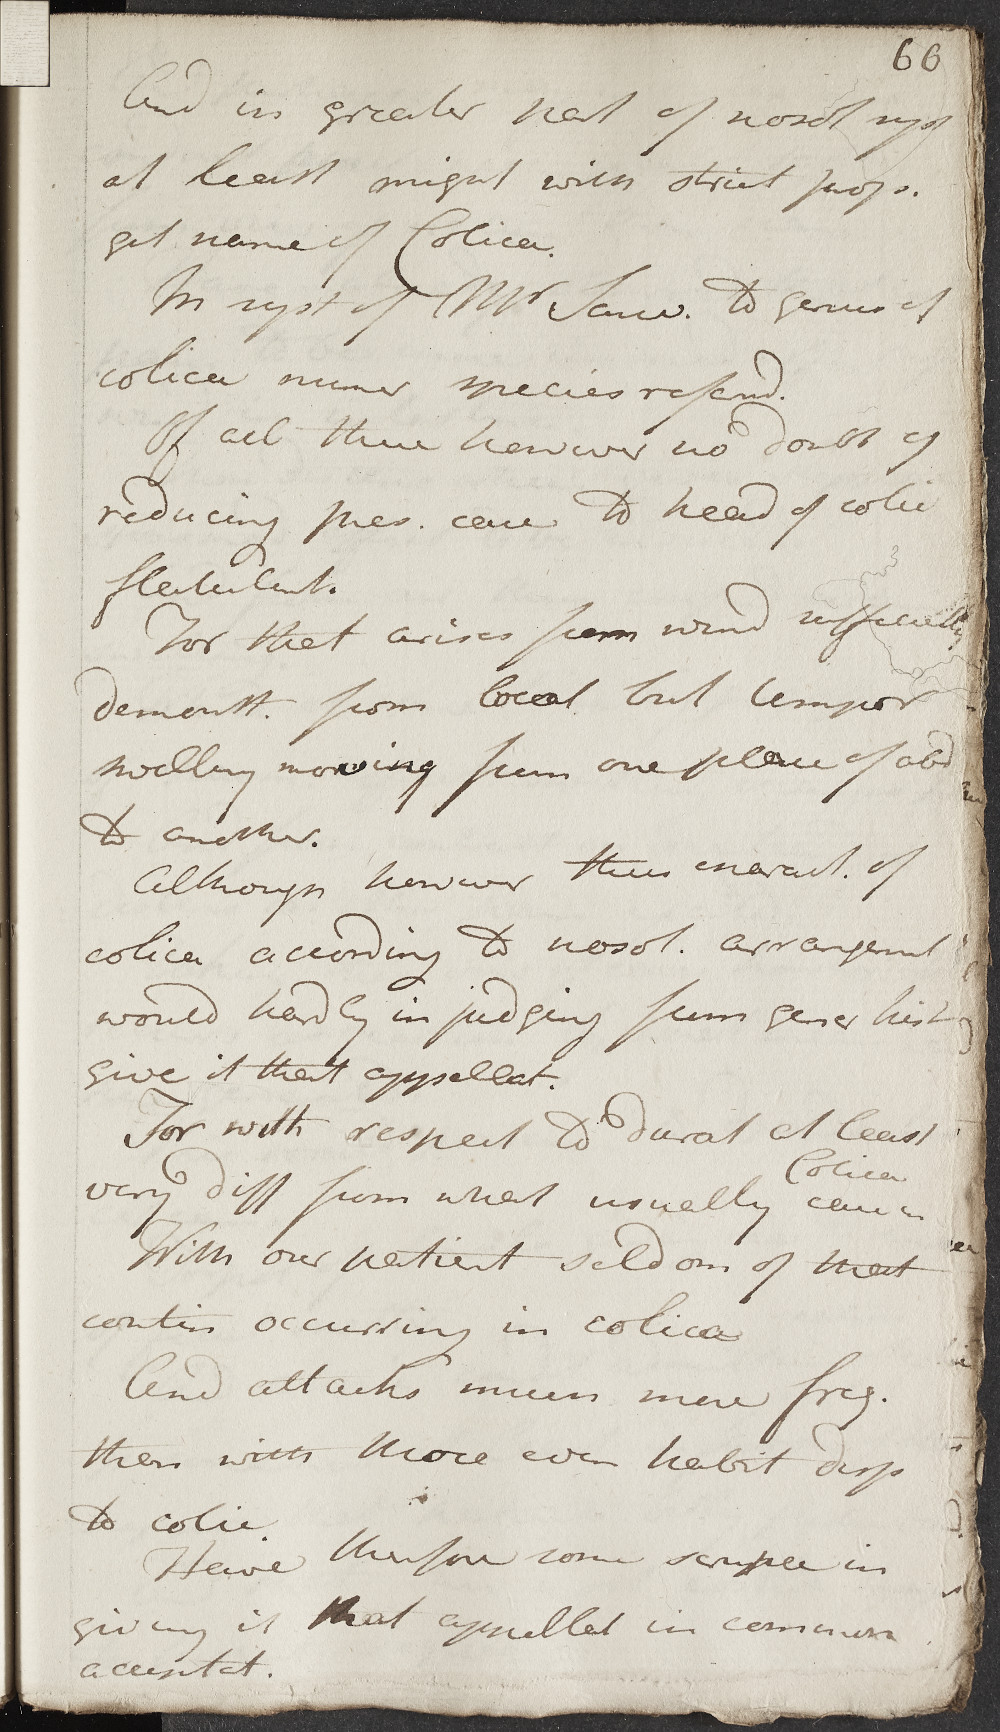 66
And in greater part of nosol syst
at least might with strict prop.
get name of Colica.
In syst of Mr Sauv. to genus of
colica numer species refend.
Of all these however no doubt of
reducing pres. case to head of colic
flatulent.
For that arises from wind sufficiently
demonst. from local but tempor
swelling moving from one place of abd
to another.
Although however thus charact. of
colica according to nosol. arrangemt
would hardly in judging from gener hist
give it that appellat.
For with respect to durat at least
very diff from what usually
Colica
With our patient seldom of that
contin occurring in colica
And attacks much more freq.
than with those even habit disp
to colic.
Have therefore some scruple in
giving it that appellat in common
acceptat.